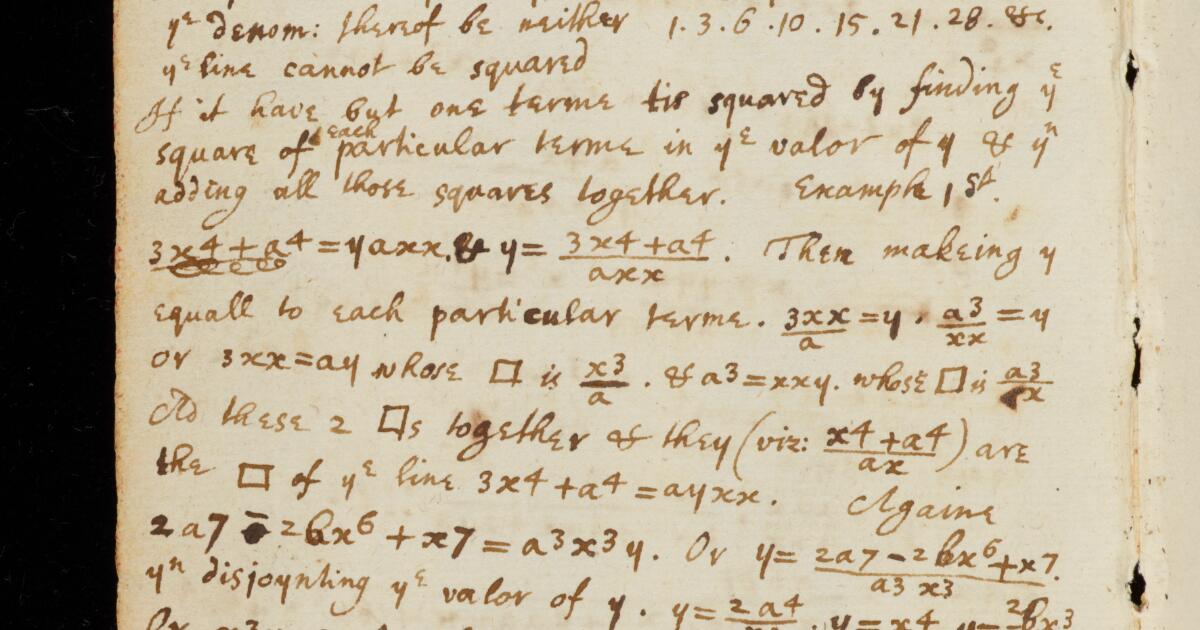 yᵉ denom: thereof be neither 1.3.6.10.15.21.28.&c.
yᵉ line cannot be squared
If it have but one terme tis squared by finding yᵉ
square of each particular terme in yᵉ valor of y & yⁿ
adding all those squares together. Example 1st.
3x4+a4=yaxx.& y= 3x4+a4/axx. Then makeing y
equall to each particular terme. 3xx/a=y. a3/xx=y
or 3xx=ay whose □ is x3/a. & a3=xxy. whose □ is a3/x
Ad these 2 □s together & they (viz: x4+a4/ax) are
the □ of yᵉ line 3x4+a4=ayxx. Againe
2a7-2bx6+x7=a3x3y. Or y= 2a7-2bx6+x7/a3x3.
yⁿ disjoynting yᵉ valor of y. y=2a4/x3. y=x4 y=2bx3